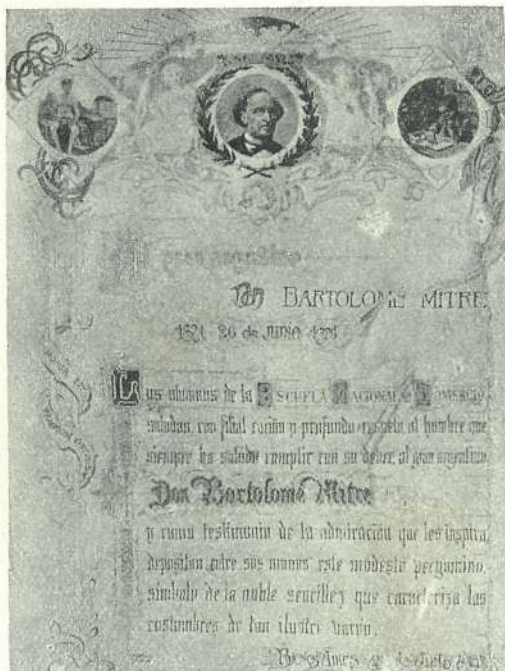 gran argentino
Don BARTOLOMÉ MITRE
1821 26 de JUNIO 1901
Los alumnos de la ESCUELA NACIONAL DE COMERCIO
saludan con filial cariño y profundo respeto al hombre que
siempre ha sabido cumplir con su deber, al gran argentino
Don Bartolomé Mitre
y como testimonio de la admiración que les inspira,
depositan entre sus manos este modesto pergamino,
símbolo de la noble sencillez que caracteriza las
costumbres de tan ilustre varón.
Buenos Aires de Junio